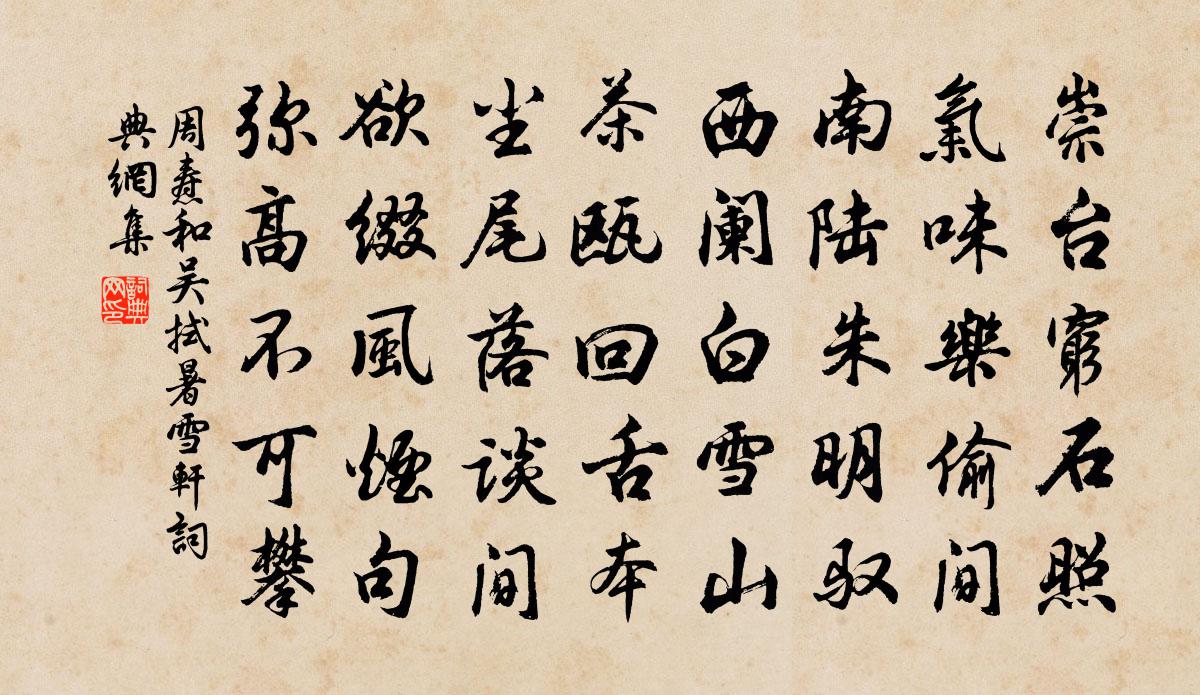 崇台窮石照
氣味樂偷間
南陆朱明驭
西阑白雪山
茶瓯回舌本
尘尾落谈间
欲缀風煙句
弥高不可攀
周燾和吴拭暑雪軒詞
典網集
詞典網印